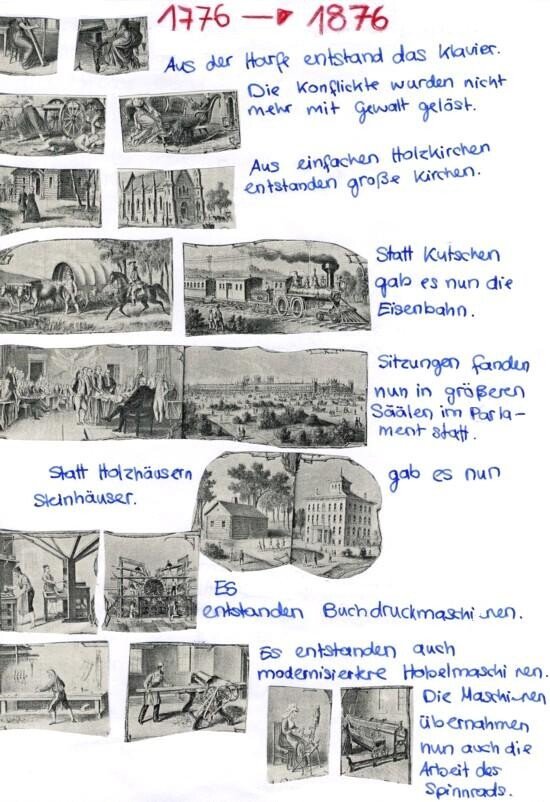 1776 → 1876
Aus der Harfe entstand das Klavier.
Die Konflickte wurden nicht
mehr mit Gewalt geläst.
Aus einfachen Holzkirchen
entstanden große Kirchen.
Statt Kutschen
gab es nun die
Eisenbahn.
Sitzungen fanden
nun in größeren
Säälen im Parla-
ment statt.
Statt Holzhäusern gab es nun
Steinhäuser.
Es
entstanden Buchdruckmaschinen.
Es entstanden auch
modernisierkre Hobelmaschinen.
Die Maschinen
übernahmen
nun auch die
Arbeit des
Spinnrads.